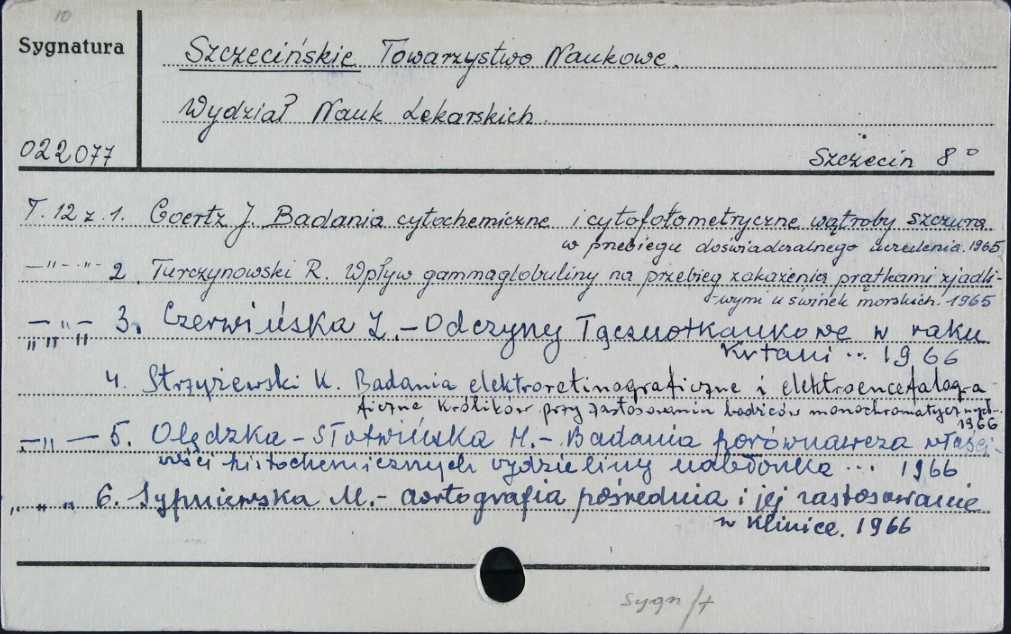 10
Sygnatura
Szczecińskie Towarzystwo Naukowe.
Wydział Nauk Lekarskich.
022077
Szczecin 8°
T. 12 z. 1. Goertz J. Badania cytochemiczne i cytofotometryczne wątroby szczura
w przebiegu doświadczalnego 1965
—"—"— 2. Turczynowski R. Wpływ gammaglobuliny na przebieg zakażenia prątkami zjadli-
wymi u świnek morskich. 1965
—"— 3. Czerwińska Z. – Odczyny Tącznotkankowe w raku
" " " Krtani ... 1966
4. Strzyżewski K. Badania elektroretinograficzne i elektroencefalogra-
ficzne królików przy zastosowaniu bodźców monochromatycznych...
1966
—"— 5. Olędzka-Słotwińska H. – Badania porównawcze właści-
wości histochemicznych wydzieliny nabłonka ... 1966
" " " 6. Sypniewska M. – aortografia pośrednia i jej zastosowanie
w klinice. 1966
sygn /t